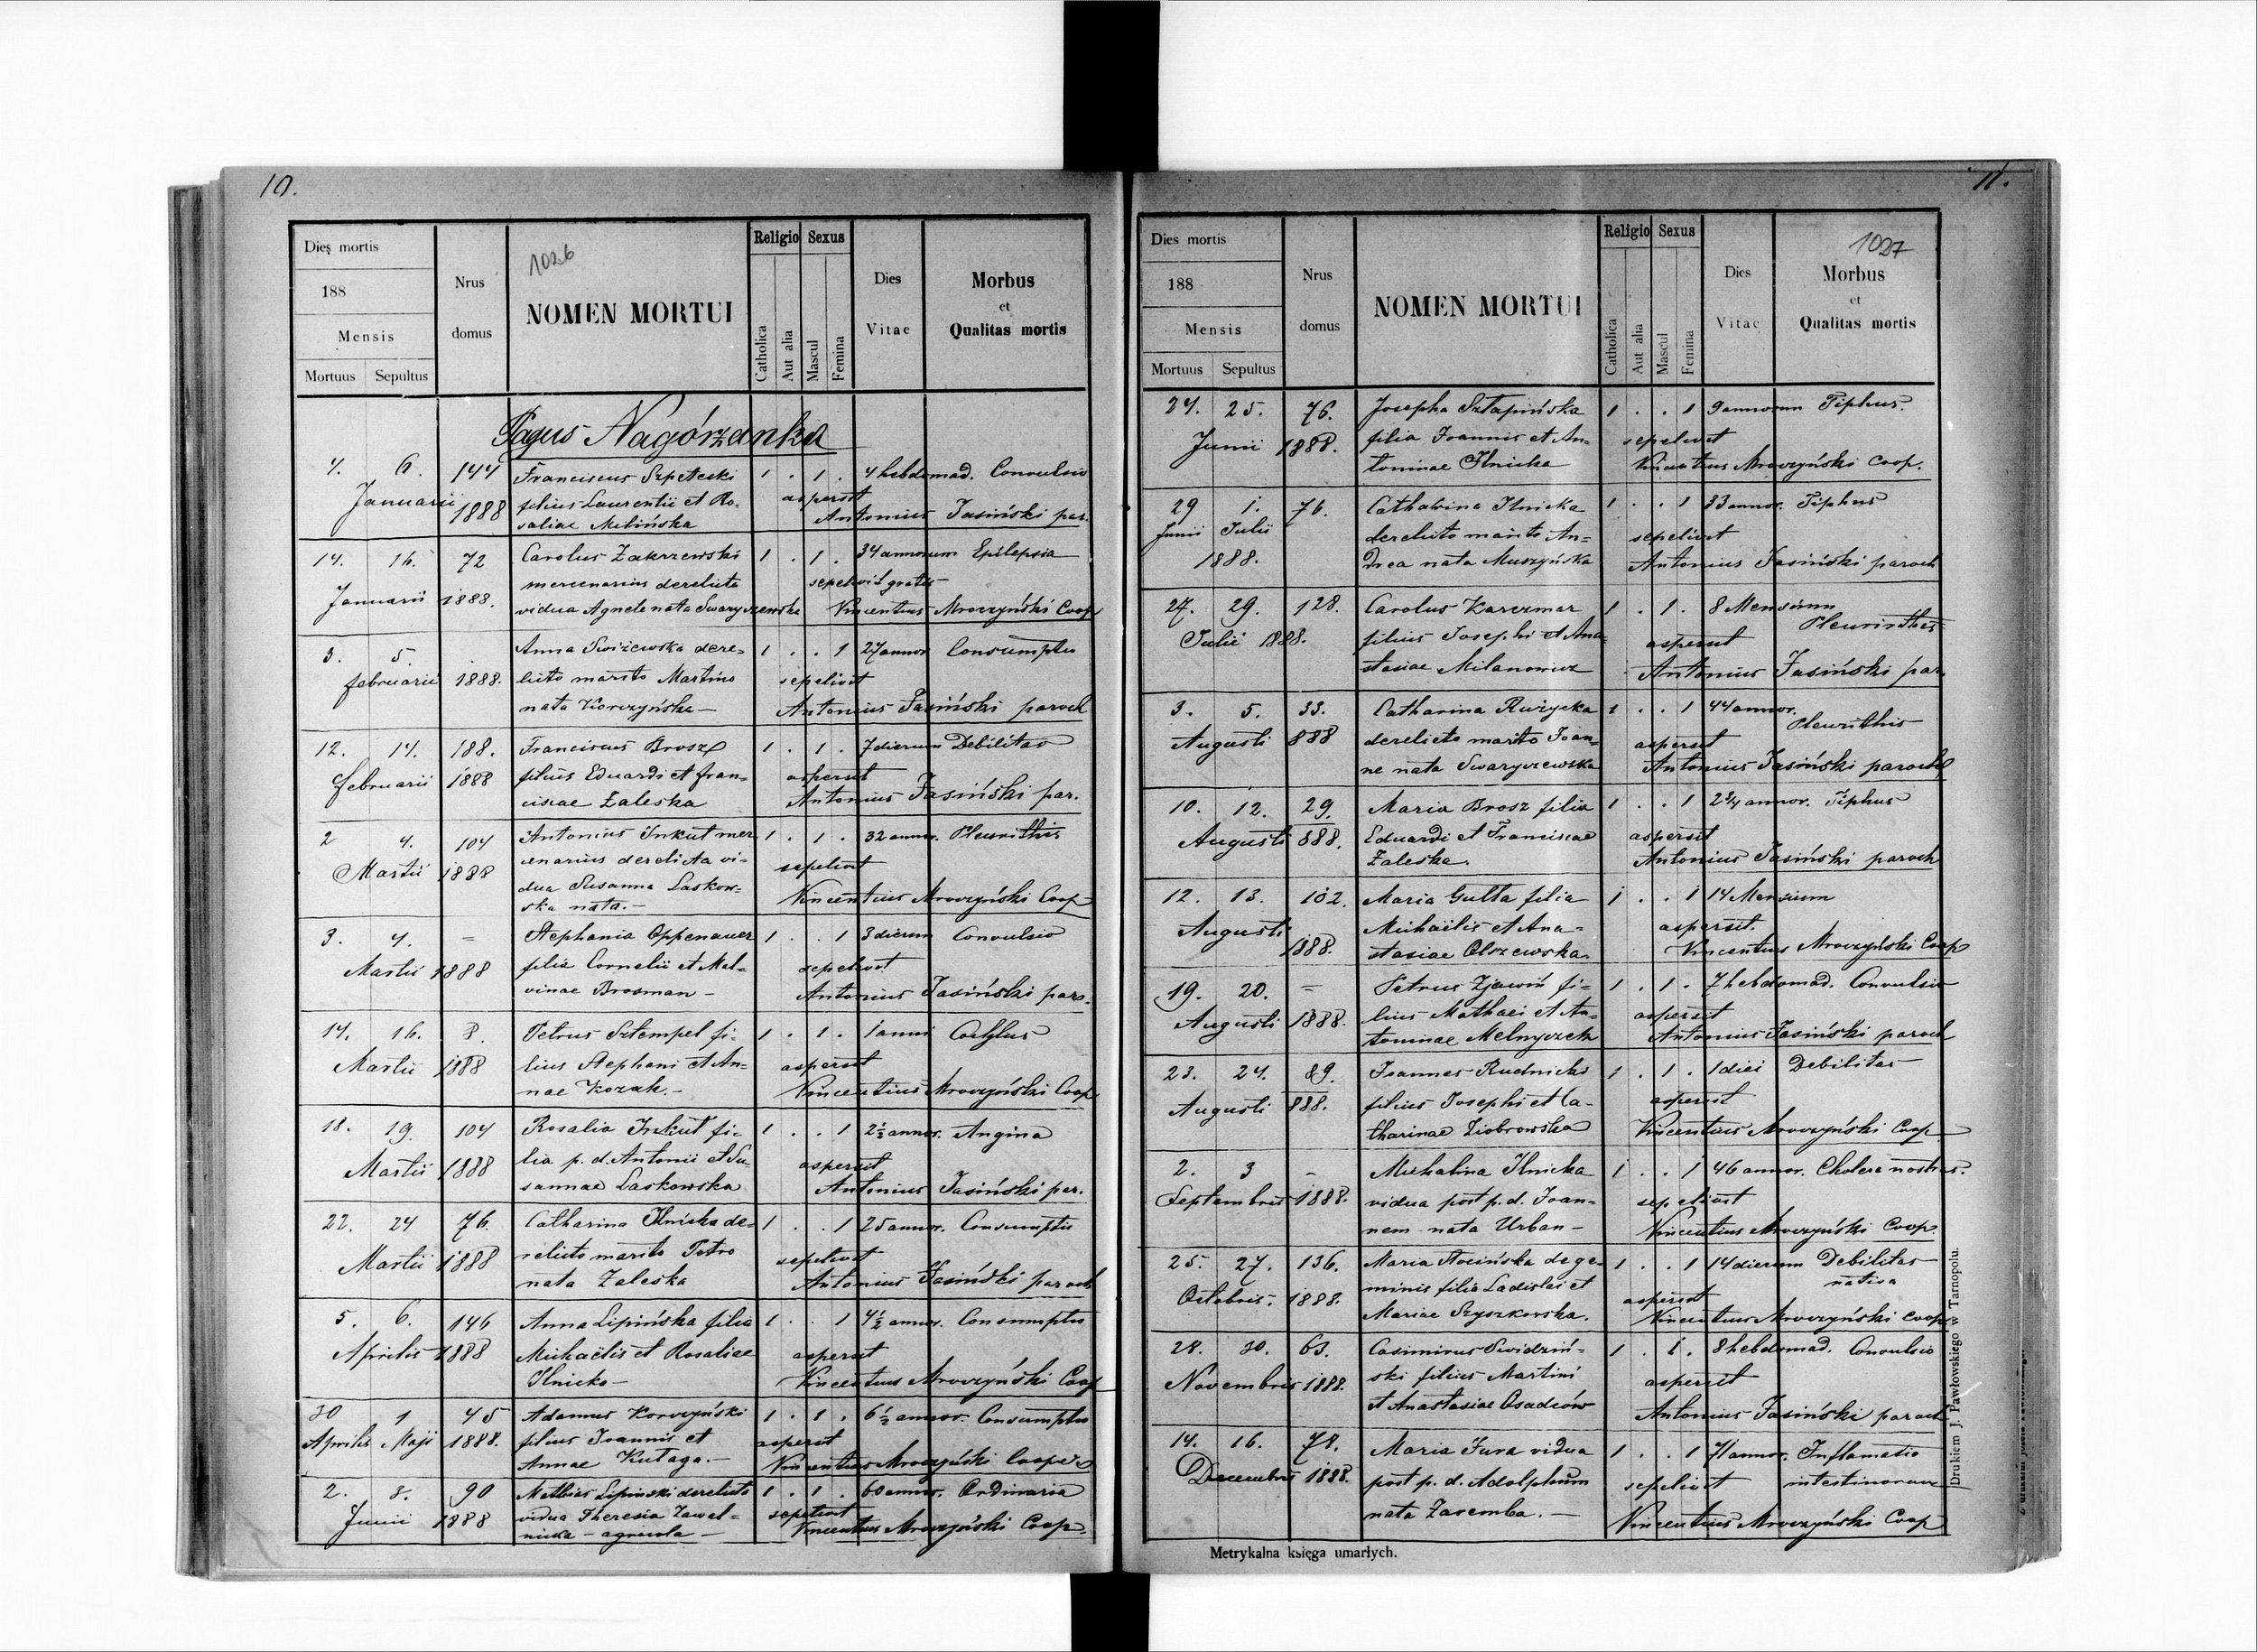 10.
Dies mortis
188
Mensis
Mortuus Sepultus
Nrus domus
1026
NOMEN MORTUI
Religio
Catholica
Aut alia
Sexus
Mascul
Femina
Dies Vitae
Morbus
et
Qualitas mortis
Pagus Nagórzanka
4. 6. 144 Franciscus Szpetecki 1 . 1 . 4 hebdomad. Convulsio
Januarii 1888 filius Laurentii et Ro- aspersit
saliae Antonius Jasiński par.
14. 16. 72 Carolus Zakrzewski 1 . 1 . 34 annorum Epilepsia
mercenarius derelicta sepelivit gratis
Januarii 1888. vidua Agnete nata Swaryczewska Vincentius Mroczyński Coop
3. 5. Anna Swiżewska dere= 1 . . 1 27 annor Consumptio
februarii 1888. licto marito Martino sepelivit
nata Korczyńska – Antonius Jasiński paroch
12. 14. 188. Franciscus Brosz 1 . 1 . 7 dierum Debilitas
februarii 1888 filius Eduardi et fran= aspersit
ciscae Zaleska Antonius Jasiński par.
2 4. 104 Antonius Inkut mer 1 . 1 . 32 annor. Pleurithis
Martii 1888 cenarius derelicta vi- sepelivit
dua Susanna Laskow-
ska nata.– Vincentius Mroczyński Coop
3. 4. = Stephania Oppenauer 1 . . 1 3 dierum Convulsio
Martii 1888 filia Cornelii et Mal- sepelivit
vinae Brosman – Antonius Jasiński paro.
14. 16. 8. Petrus Sztempel fi- 1 . 1 . 1 anni
Martii 1888 lius Stephani et An= aspersit
nae Kozak.– Vincentius Mroczyński Coop
18. 19. 104 Rosalia Inkut fi- 1 . . 1 2½ annor. Angina
Martii 1888 lia p. d. Antonii et Su- aspersit
sannae Laskowska Antonius Jasiński par.
22. 24 76. Catharina Ilnicka de- 1 . . 1 25 annor. Consumptio
Martii 1888 relicto marito Petro sepelivit
nata Zaleska Antonius Jasiński paroch
5. 6. 146 Anna Lipińska filia 1 . . 1 4½ annor. Consumptio
Aprilis 1888 Michaëlis et Rosaliae aspersit
Ilnicka – Vincentius Mroczyński Coop
30 1 45 Adamus Korczyński 1 . 1 . 6½ annor. Consumptio
Aprilis Maji 1888. filius Joannis et aspersit
Annae Kutaga.– Vincentius Mroczyński Cooper
2. 8. 90 Mathias Lipinski derelicta 1 . 1 . 60 annor. Ordinaria
Junii 1888 vidua Theresia Zawal- sepelivit
nicka – agricola – Vincentius Mroczyński Coop.
11.
Dies mortis
188
Mensis
Mortuus Sepultus
Nrus domus
NOMEN MORTUI
Religio
Catholica
Aut alia
Sexus
Mascul
Femina
Dies Vitae
1027
Morbus
et
Qualitas mortis
24. 25. 76. Josepha Sztapińska 1 . . 1 9 annorum Tiphus.
Junii 1888. filia Joannis et An= sepelivit
toninae Ilnicka Vincentius Mroczyński Coop.
29 1. 76. Catharina Ilnicka 1 . . 1 33 annor. Tiphus
Junii Julii derelicto marito An= sepelivit
1888. drea nata Muszyńska Antonius Jasiński paroch
27. 29. 128. Carolus Karczmar 1 . 1 . 8 Mensium Pleurithis
Julii 1888. filius Josephi et Ana- aspersit
stasiae Milanowicz Antonius Jasiński par.
3. 5. 33. Catharina Rużycka 1 . . 1 44 annor. Pleurithis
Augusti 888 derelicto marito Joan= aspersit
ne nata Swaryczewska Antonius Jasiński paroch
10. 12. 29. Maria Brosz filia 1 . . 1 2¾ annor. Tiphus
Augusti 888. Eduardi et Franciscae aspersit
Zaleska. Antonius Jasiński paroch
12. 13. 102. Maria Gutta filia 1 . . 1 14 Mensium
Augusti 1888. Michäelis et Ana- aspersit.
stasiae Olszewska. Vincentius Mroczyński Coop
19. 20. = Petrus Zjawiń fi= 1 . 1 . 7 hebdomad. Convulsio
Augusti 1888. lius Mathaei et An- aspersit
toninae Melnyczek Antonius Jasiński paroch
23. 24. 89. Joannes Rudnicki 1 . 1 . 1 diei Debilitas
Augusti 888. filius Josephi et Ca- aspersit
tharinae Ziobrowska Vincentius Mroczyński Coop
2. 3 – Michalina Ilnicka 1 . . 1 46 annor. Cholera nostras.
Septembris 1888. vidua post p. d. Joan- sepelivit
nem nata Urban – Vincentius Mroczyński Coop.
25. 27. 136. Maria de ge- 1 . . 1 14 dierum Debilitas
nativa
Octobris. 1888. minis filia Ladislai et aspersit
Mariae Szyszkowska. Vincentius Mroczyński Coop
28. 30. 63. Casimirus Swidziń- 1 . 1 . 8 hebdomad. Convulsio
Novembris 1888. ski filius Martini aspersit
et Anastasiae Osadców Antonius Jasiński paroch
14. 16. 78. Maria Jura vidua 1 . . 1 71 annor. Inflamatio
Decembris 1888. post p. d. Adolphum sepelivit intestinorum
nata Zaremba. – Vincentius Mroczyński Coop
Metrykalna księga umarłych.
Drukiem J. Pawłowskiego w Tarnopolu.